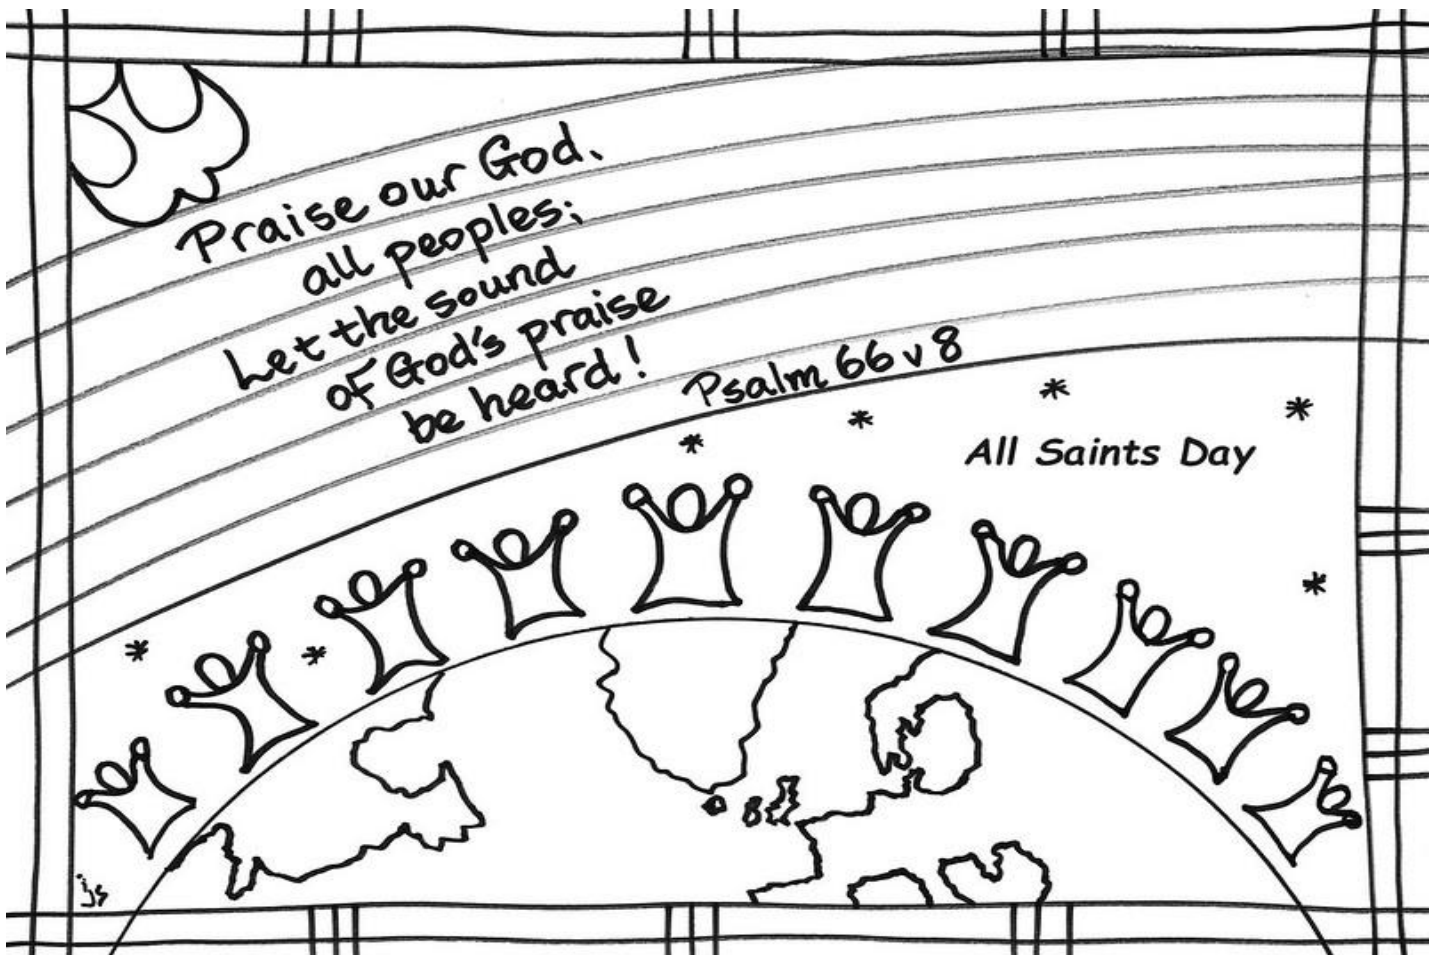 Praise our God,
all peoples;
Let the sound
of God's praise
be heard!
Psalm 66 v 8
All Saints Day
ijs